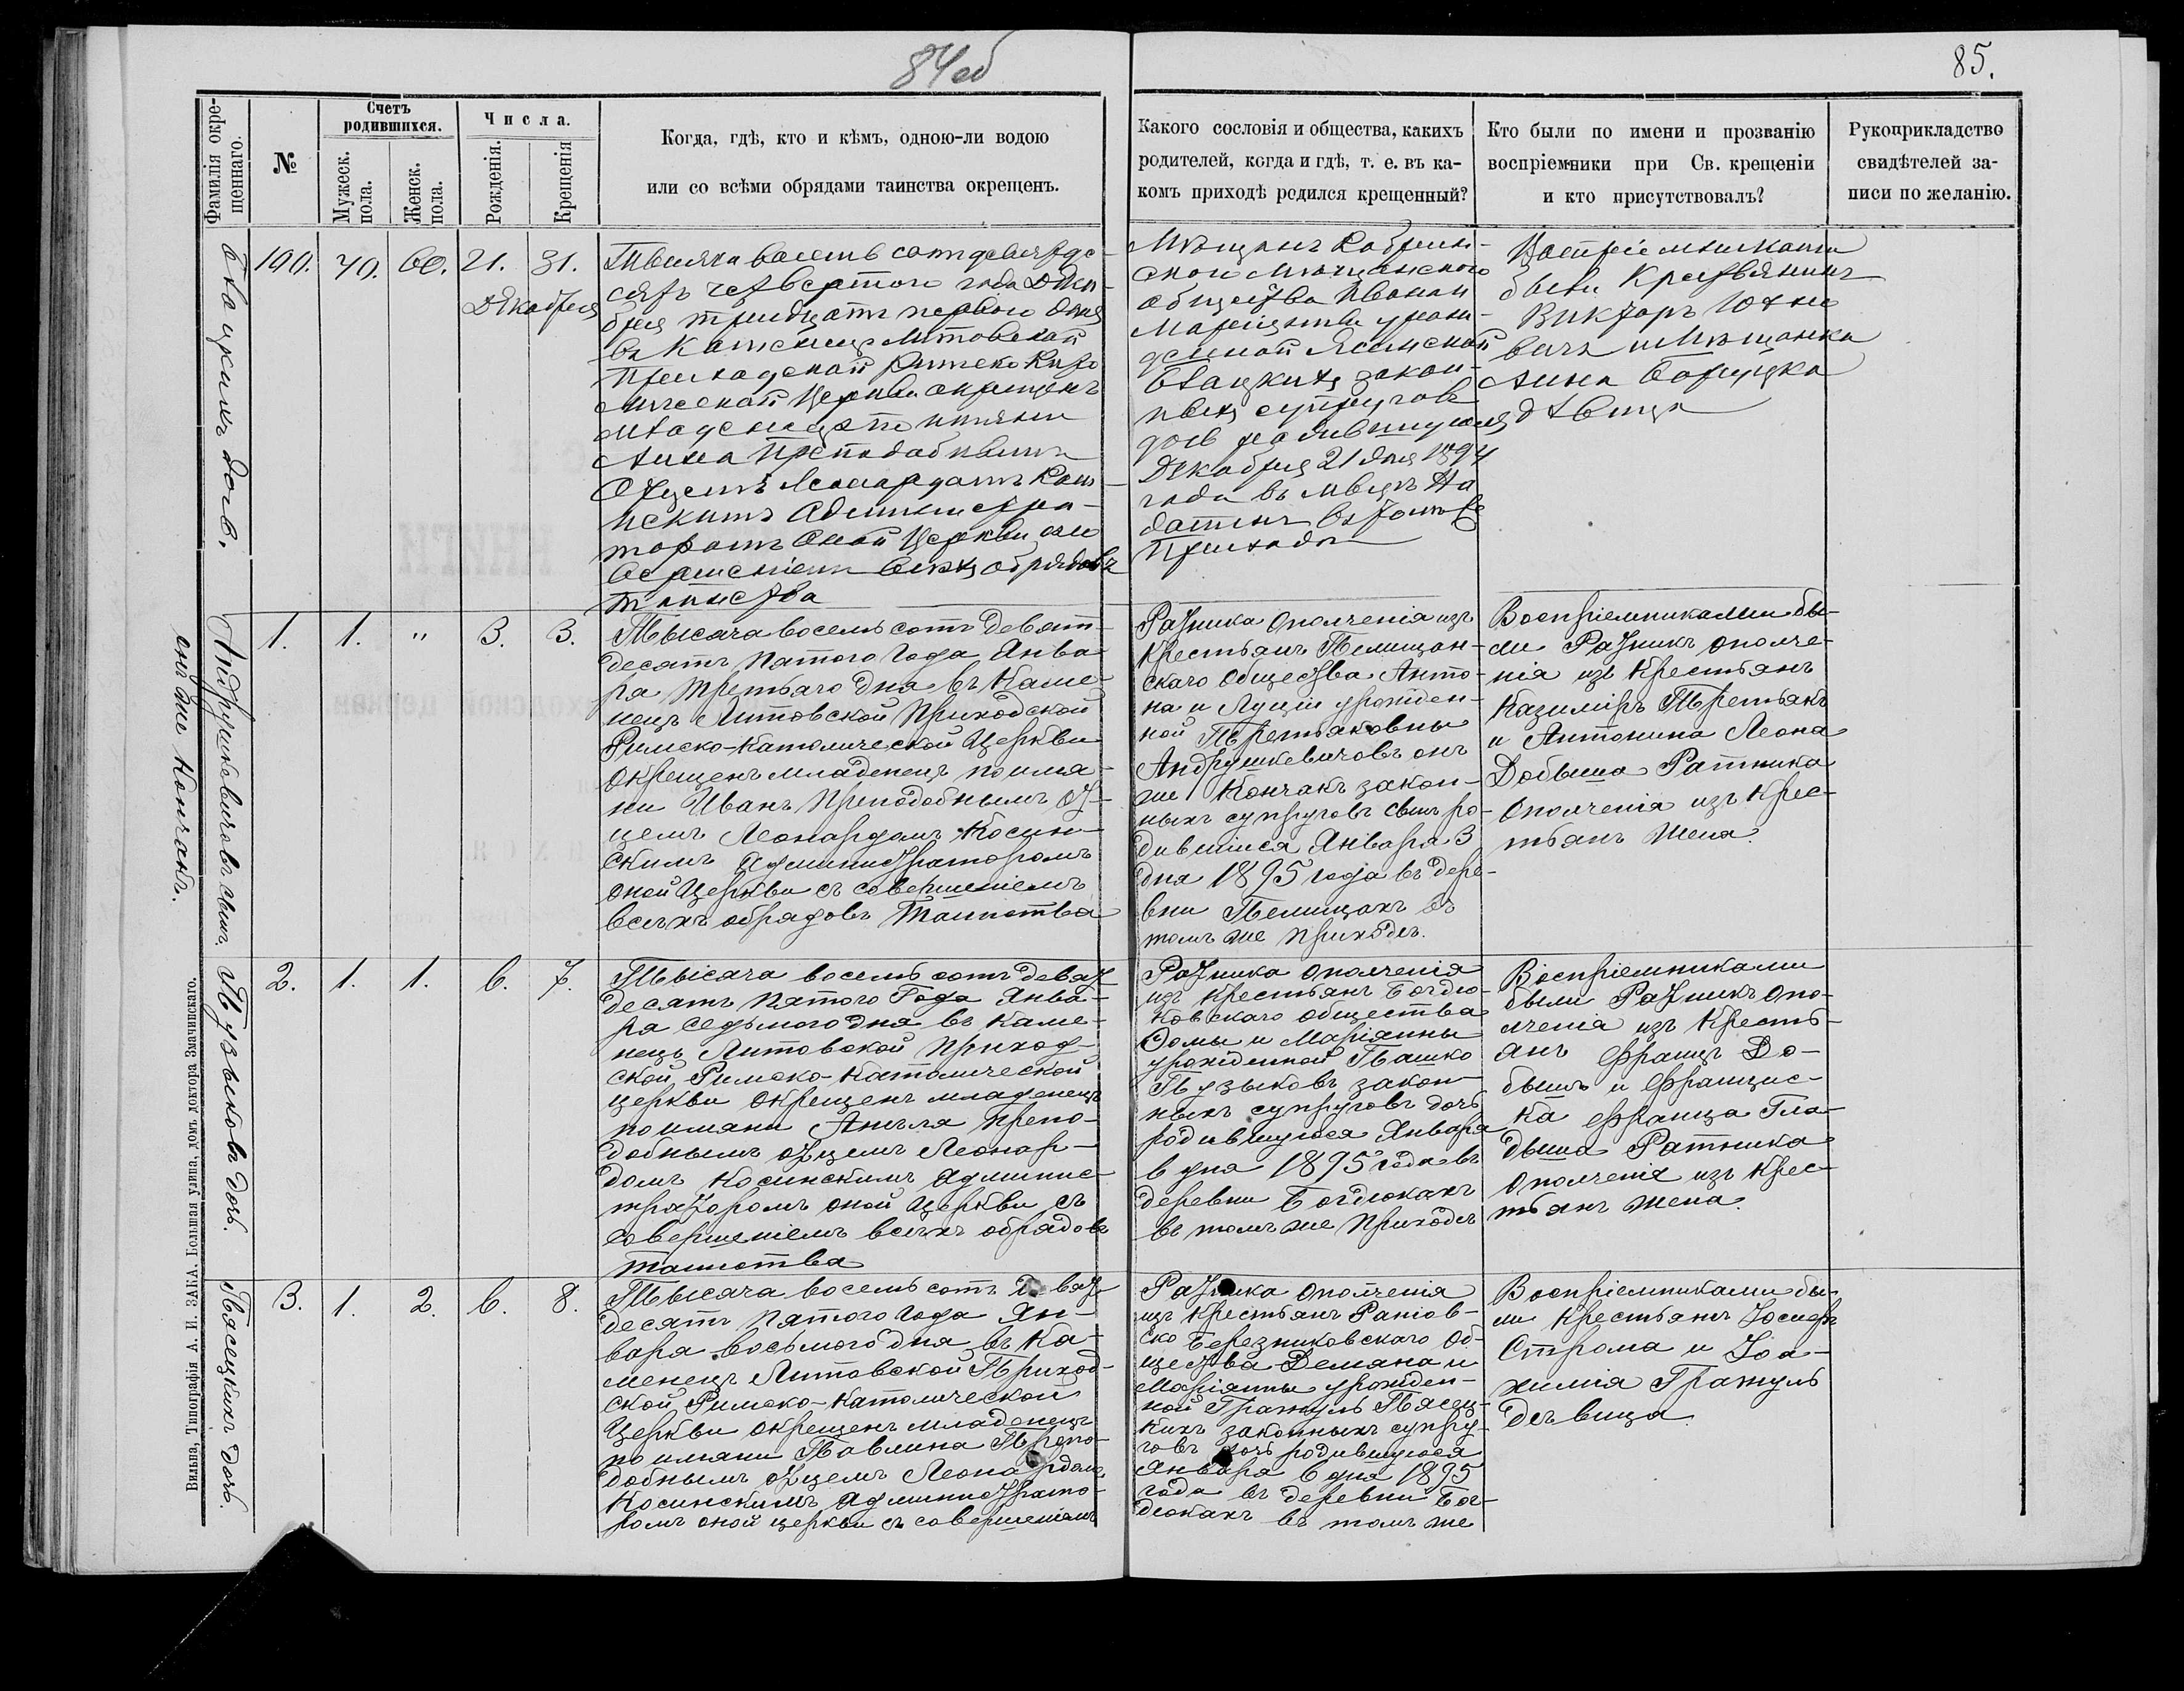 84об
85.
Фамилія окрещеннаго.
№
Счетъ родившихся.
Мужеск. пола.
Женск. пола.
Числа.
Рожденія.
Крещенія
Когда, гдѣ, кто и кѣмъ, одною-ли водою
или со всѣми обрядами таинства окрещенъ.
Какого сословія и общества, какихъ
родителей, когда и гдѣ, т. е. въ ка-
комъ приходѣ родился крещенный?
Кто были по имени и прозванію
воспріемники при Св. крещеніи
и кто присутствовалъ?
Рукоприкладство
свидѣтелей за-
писи по желанію.
дочь.
21. 31.
Декабря
Тысяча восемь сотъ девятьде-
сятъ четвертого года Дека-
бря тридцать первого дня
въ Каменецъ Литовской
Приходской Римско Като
лической Церкви окрещенъ
младенецъ по имяни
Анна Преподобнымъ
Отцемъ Леонардомъ Кос-
инскимъ Администра-
торомъ оной Церкви со
всѣхъ обрядовъ
таинства
общества Ивана и
закон-
ныхъ супруговъ
дочь родившуюся
Декабря 21 дня 1894
года въ
томъ же
Приходѣ
Воспріемниками
были Крестьянинъ
Викторъ
и Мѣщанка
Анна
дѣвица
Андрушкевичовъ сынъ.
онъ же Кончакъ.
1. 1. " 3. 3.
Тысяча восемь сотъ девять-
десятъ пятого года Янва-
ра третьяго дня въ Каме-
нецъ Литовской Приходской
Римско-Католической Церкви
окрещенъ младенецъ по имя-
ни Иванъ Преподобнымъ От-
цемъ Леонардомъ Косин-
скимъ Администраторомъ
оной Церкви съ совершеніемъ
всѣхъ обрядовъ Таинства
Ратника ополченія изъ
Крестьянъ Пелищан-
скаго Общества Анто-
на и Луціи урожден-
ной Третьяковны
Андрушкевичовъ онъ
же Кончакъ закон-
ныхъ супруговъ сынъ ро-
дившійся Января 3
дня 1895 года въ дере-
вни Пелищахъ въ
томъ же приходѣ.
Воспріемниками бы-
ли Ратникъ ополче-
нія изъ Крестьянъ
Казиміръ Третьякъ
и Антонина Леона
Добыша Ратника
Ополченія изъ Крес-
тьянъ жена.
Пузыковъ дочь.
2. 1. 1. 6. 7.
Тысяча восемь сотъ девять
десятъ пятого Года Янва-
ра седьмого дня въ Каме-
нецъ Литовской Приход-
ской Римско-Католической
церкви окрещенъ младенецъ
по имяни Анеля Препо-
добнымъ отцемъ Леонар-
домъ Косинскимъ Админис-
траторомъ оной Церкви съ
совершеніемъ всѣхъ обрядовъ
таинства
Ратника ополченія
изъ Крестьянъ Богдю-
ковскаго общества
Фомы и Маріанны
урожденной Пашко
Пузыковъ закон-
ныхъ супруговъ дочь
родившуюся Января
6 дня 1895 года въ
деревни Богдюкахъ
въ томъ же Приходѣ
Воспріемниками
были Ратникъ Опо-
лченія изъ Кресть-
янъ Францъ До-
бышъ и Францис-
ка Франца Гла-
дыша Ратника
Ополченія изъ Крес-
тьянъ жена.
Пясецкихъ дочь.
3. 1. 2. 6. 8.
Тысяча восемь сотъ девять
десятъ пятого года Ян-
варя восьмого дня въ Ка-
менецъ Литовской Приход-
ской Римско-Католической
Церкви окрещенъ младенецъ
по имяни Павлина Препо-
добнымъ отцемъ Леонардомъ
Косинскимъ Администрато-
ромъ оной церкви съ совершеніемъ
Ратника ополченія
изъ Крестьянъ Ратов-
ско Березниковскаго Об-
щества Демана и
Маріянны урожден-
ной Гражуль Пясец-
кихъ законныхъ супру-
говъ дочь родившуюся
Января 6 дня 1895
года въ деревни Бог-
дюкахъ въ томъ же
Воспріемниками бы-
ли Крестьянъ Іосифъ
Строма и
Гражуль
дѣвица
Вильна, Типографія А. И. ЗАКА, Большая улица, домъ доктора Змачинскаго.